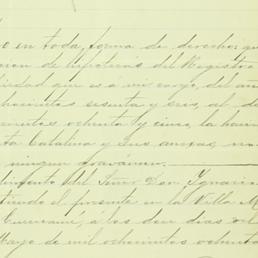 o en toda forma de derecho; que
de hipotecas del Registro
piedad que es á mi cargo, del año
ochocientos sesenta y tres, al de
cientos ochenta y cinco, la hacien
ta Catalina y sus anexas, no
ningun gravámen.
dimento del Señor Don Ignacio
tiendo el presente en la Villa M
Cucurumé, á los dies dias del
Mayo de mil ochocientos ochenta